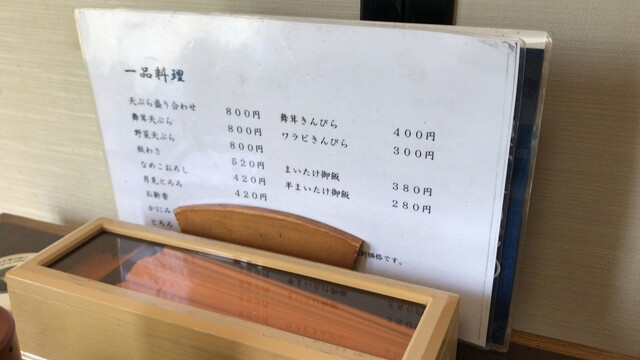 一品料理
天ぷら盛り合わせ 800円
舞茸天ぷら 800円
野菜天ぷら 800円
板わさ 520円
なめこおろし 420円
月見とろろ 420円
お新香
かにみ
とろろ
舞茸きんぴら 400円
ワラビきんぴら 300円
まいたけ御飯 380円
半まいたけ御飯 280円
価格です。